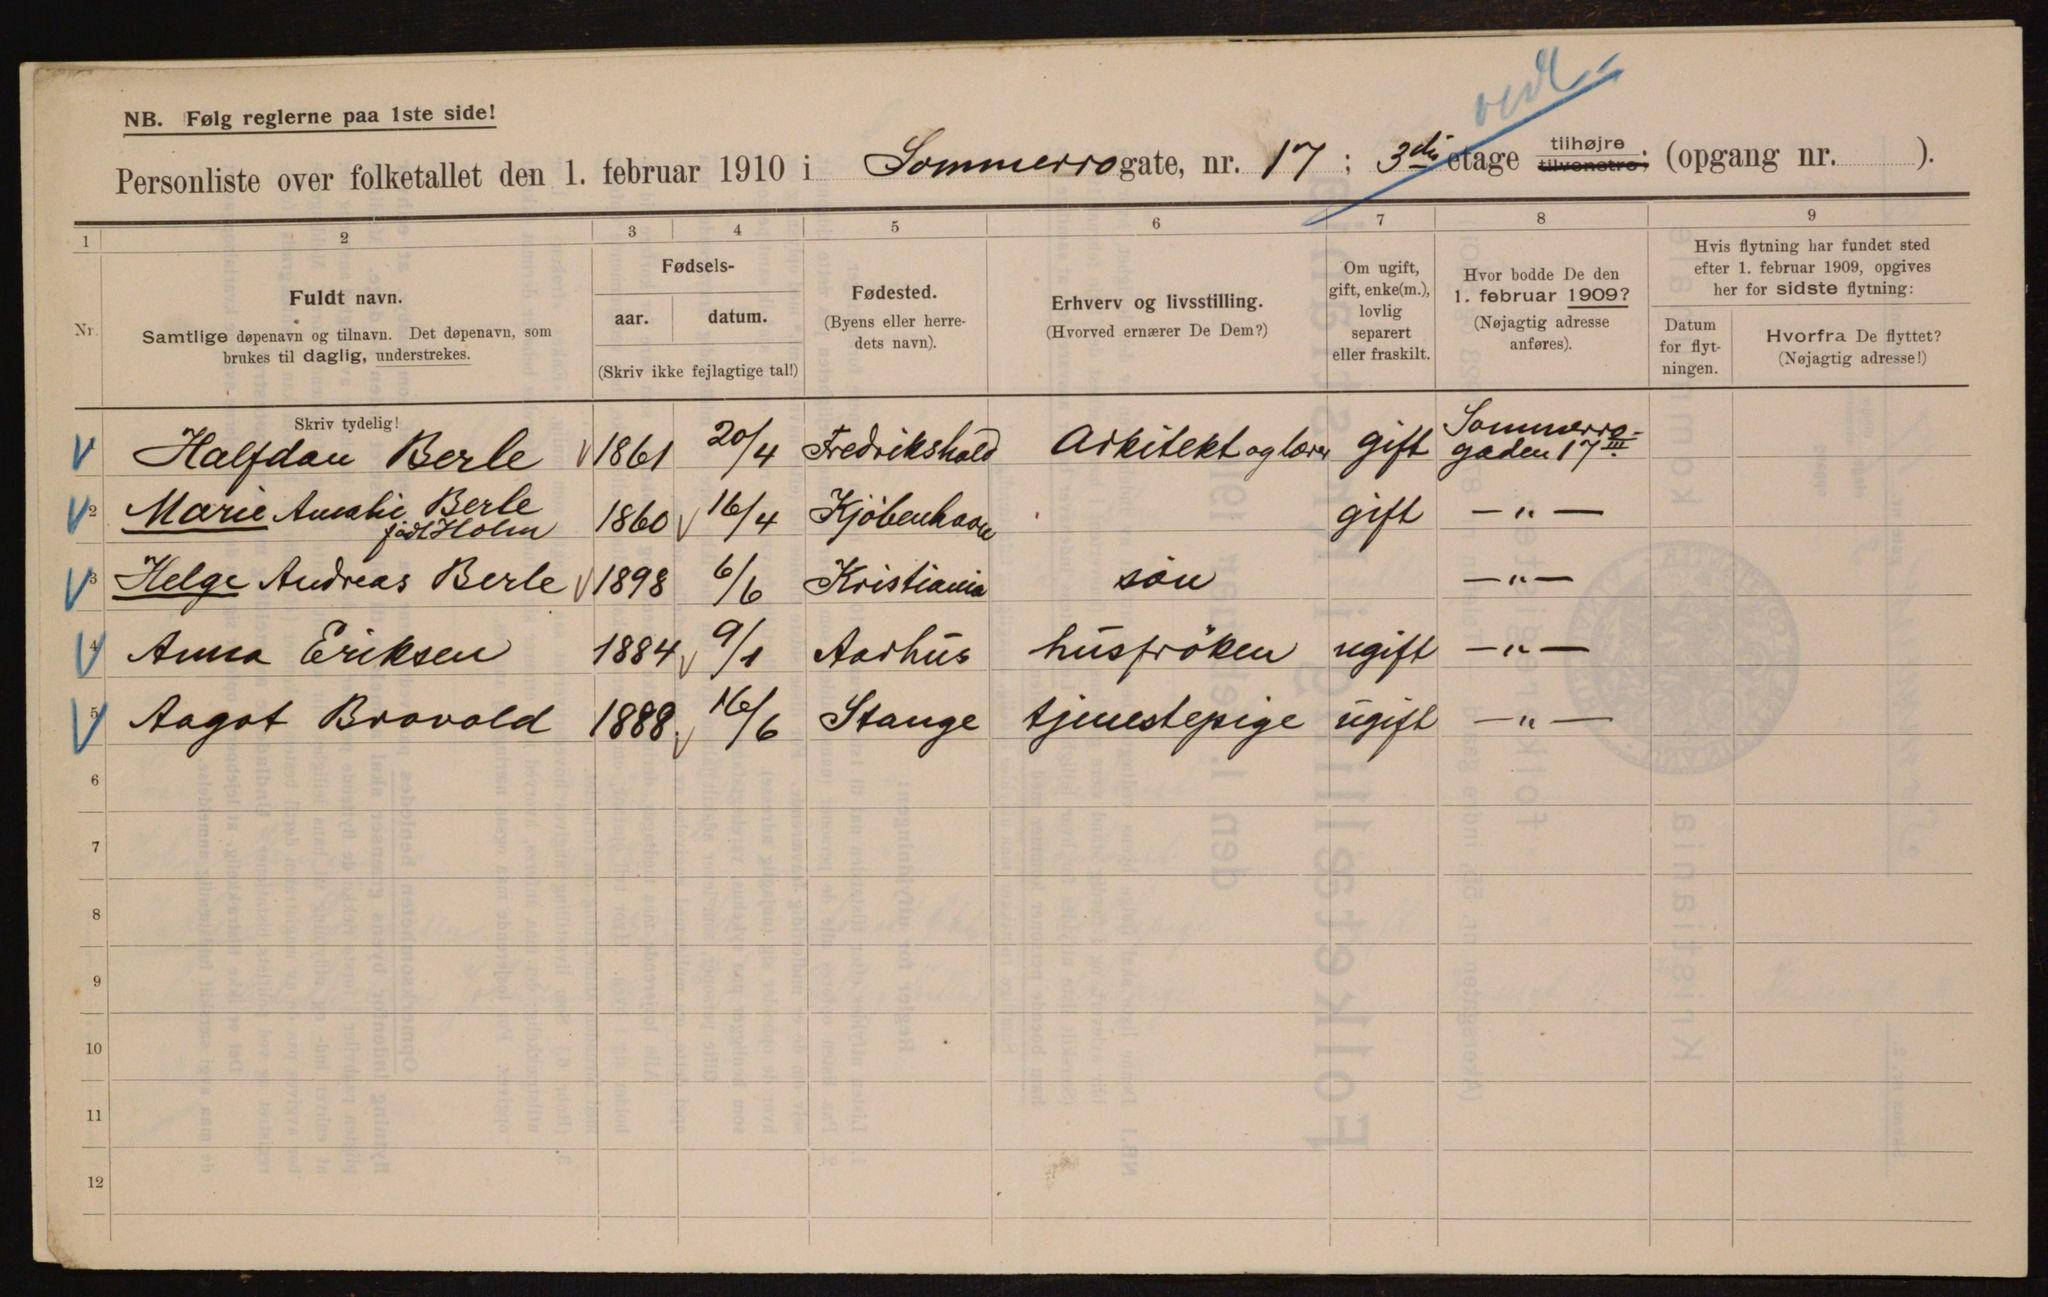 NB. Følg reglerne paa 1ste side!
Personliste over folketallet den 1. februar 1910 i Sommerrogate, nr. 17; 3die etage tilhøjre tilvenstre; (opgang nr. ).
1 2 3 4 5 6 7 8 9
Nr.
Fuldt navn.
Samtlige døpenavn og tilnavn. Det døpenavn, som
brukes til daglig, understrekes.
Fødsels-
aar. datum.
(Skriv ikke fejlagtige tal!)
Fødested.
(Byens eller herre-
dets navn).
Erhverv og livsstilling.
(Hvorved ernærer De Dem?)
Om ugift,
gift, enke(m.),
lovlig
separert
eller fraskilt.
Hvor bodde De den
1. februar 1909?
(Nøjagtig adresse
anføres).
Hvis flytning har fundet sted
efter 1. februar 1909, opgives
her for sidste flytning:
Datum
for flyt-
ningen.
Hvorfra De flyttet?
(Nøjagtig adresse!)
Skriv tydelig!
Halfdan Berle 1861 20/4 Fredrikshald Arkitekt og lærer gift Sommerro-
gaden 17 III
2 Marie Amalie Berle
født Holm 1860 16/4 Kjöbenhavn gift — „ —
3 Helge Andreas Berle 1898 6/6 Kristiania sön — „ —
4 Anna Eriksen 1884 9/1 Aarhus husfröken ugift — „ —
5 Aagot Brovold 1888. 16/6 Stange tjenestepige ugift — „ —
6
7
8
9
10
11
12